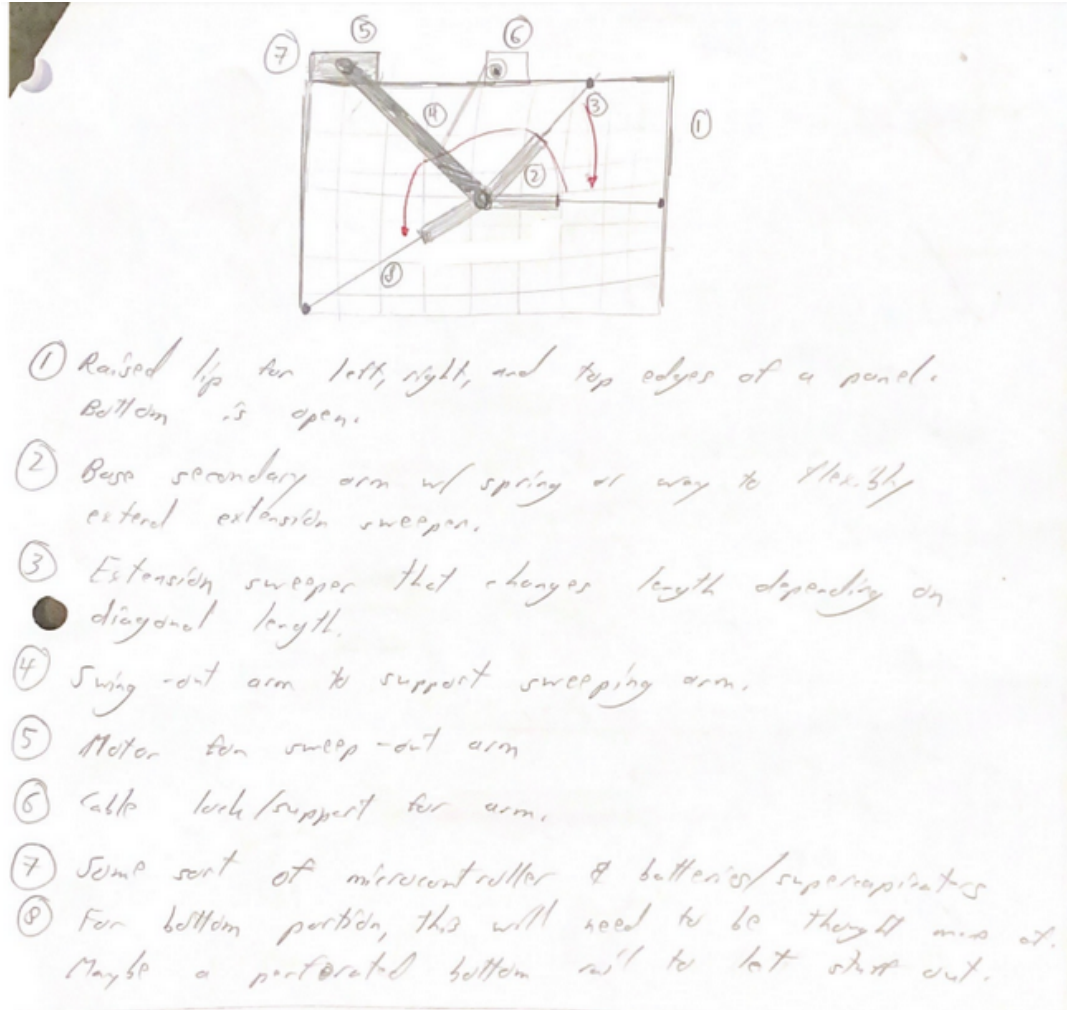 ⑤ ⑥
⑦
④ ③ ①
②
⑧
① Raised lip for left, right, and top edges of a panel.
Bottom is open.
② Base secondary arm w/ spring or way to flexibly
extend extension sweeper.
③ Extension sweeper that changes length depending on
diagonal length.
④ Swing-out arm to support sweeping arm.
⑤ Motor for sweep-out arm
⑥ Cable lock/support for arm.
⑦ Some sort of microcontroller & batteries/supercapicators
⑧ For bottom portion, this will need to be thought more of.
Maybe a perforated bottom rail to let stuff out.